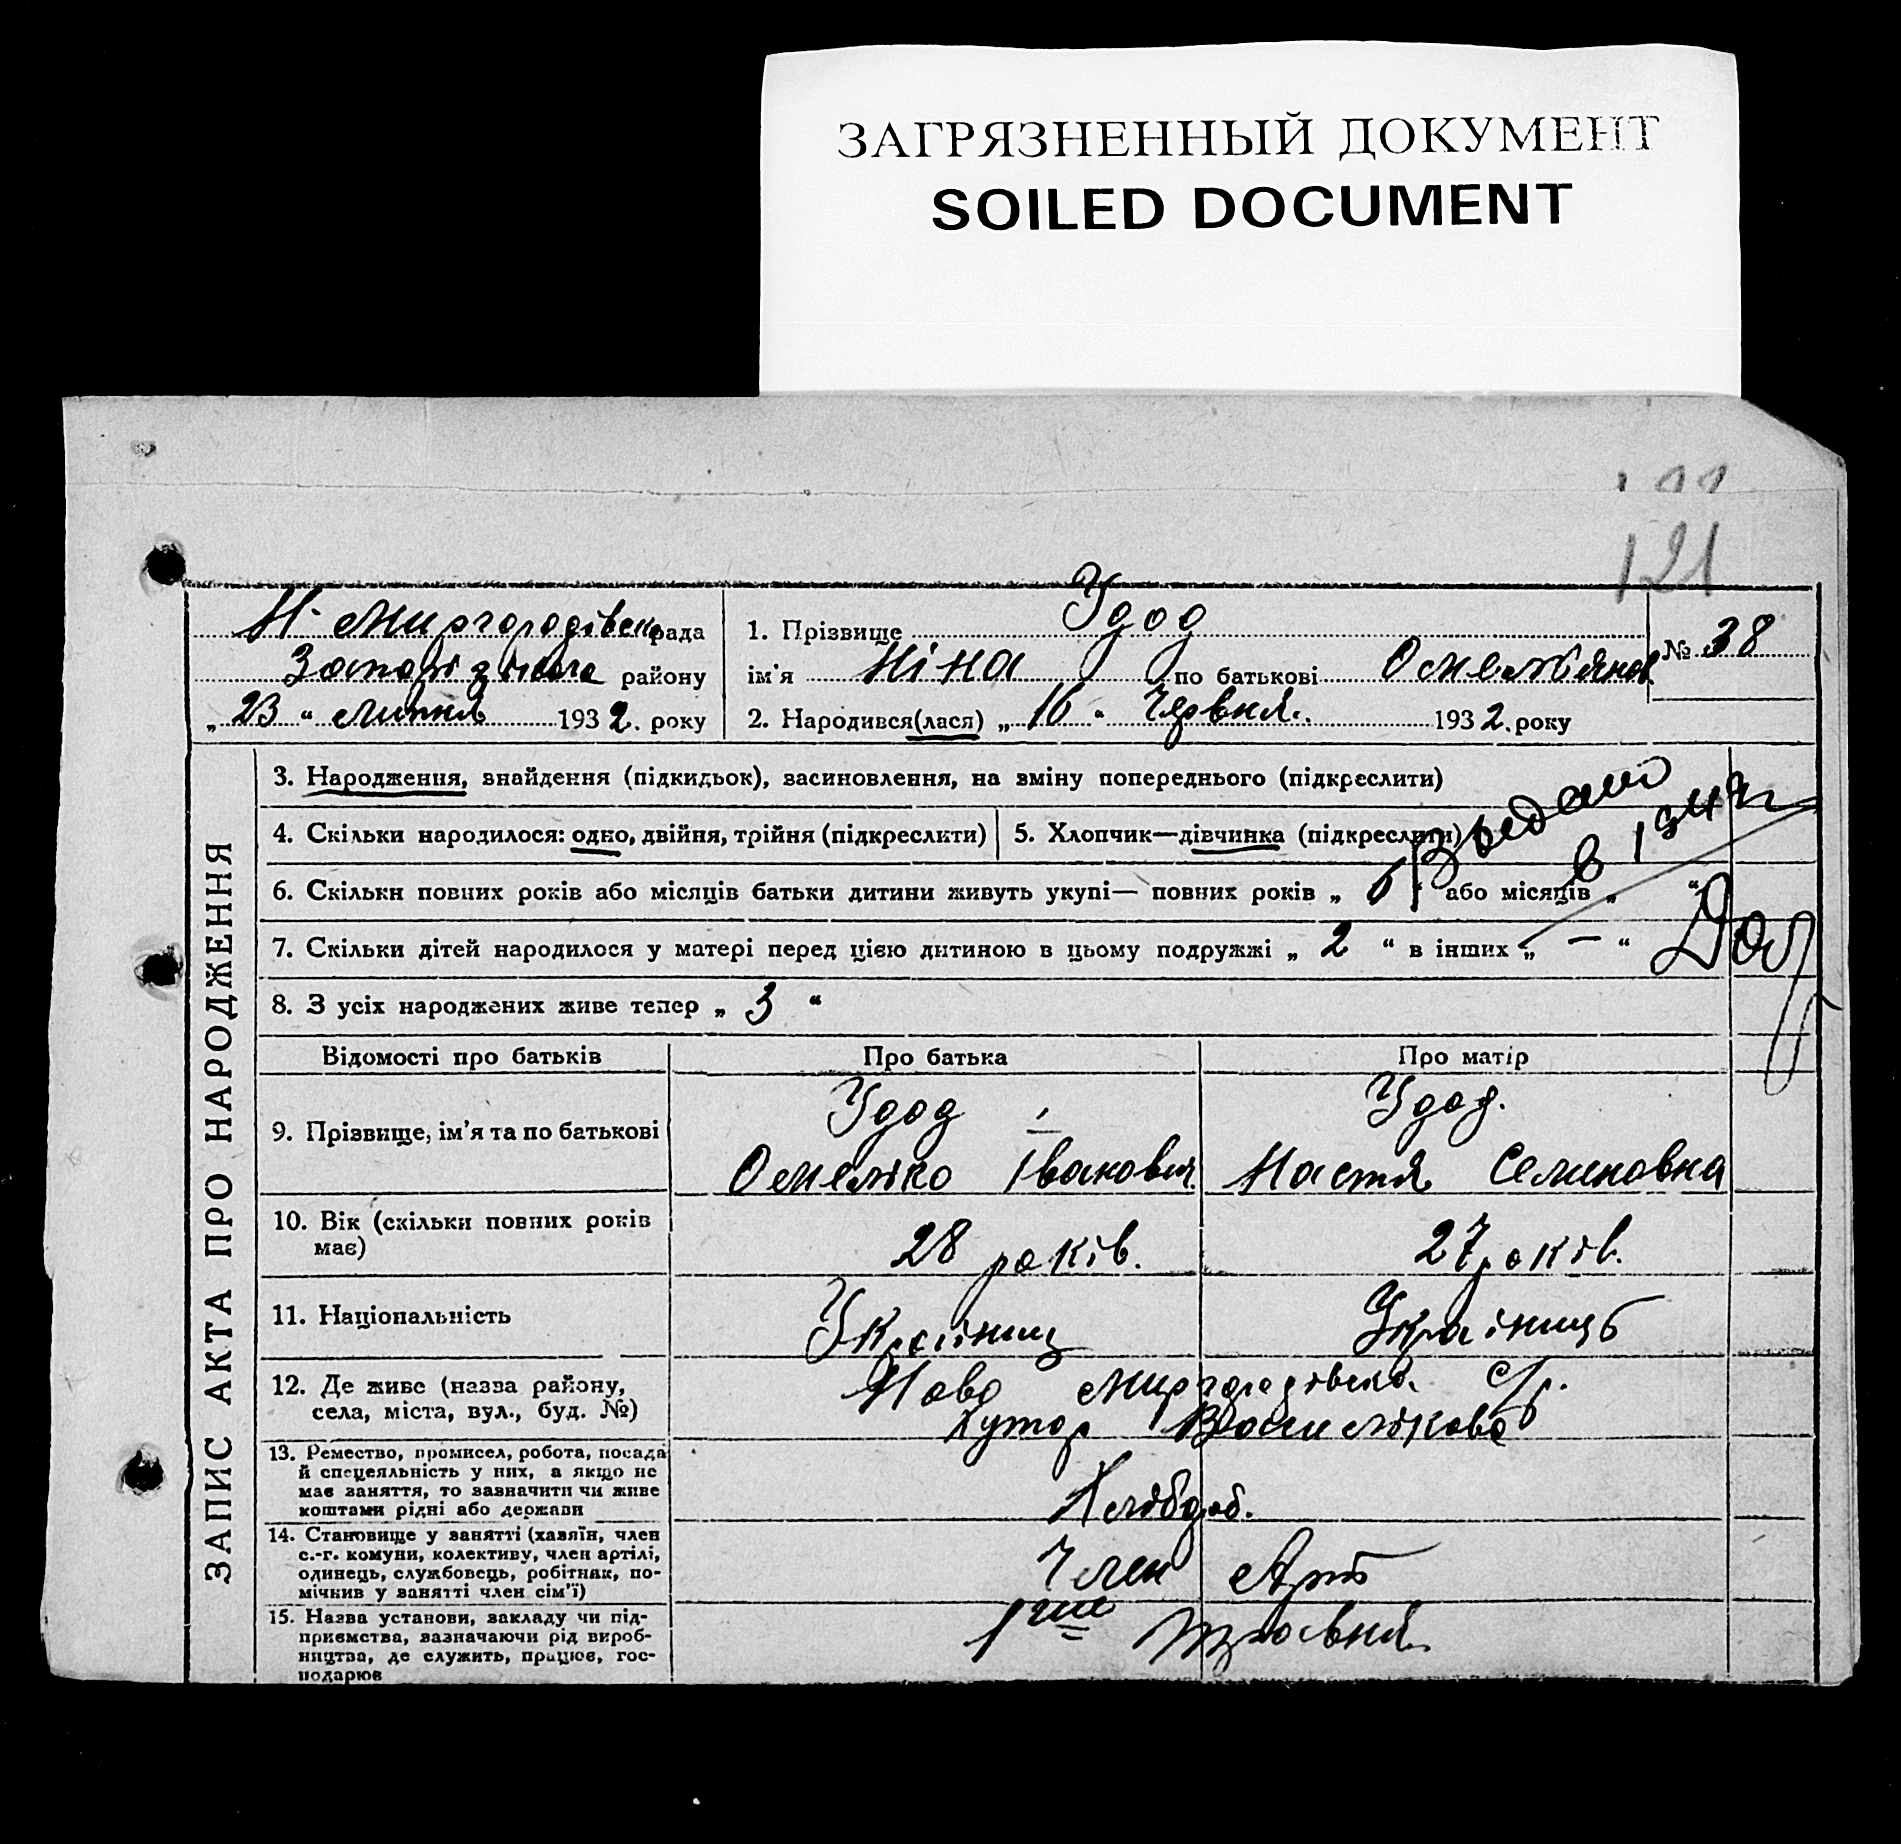 ЗАГРЯЗНЕННЫЙ ДОКУМЕНТ
SOILED DOCUMENT
121
Н-Миргородівськ рада
району
„ 23 “ липня 1932. року
1. Прізвище Удод
ім'я Ніна по батькові Омельянов.
2. Народився(лася) „ 16 “ Червня. 1932. року
№ 38
ЗАПИС АКТА ПРО НАРОДЖЕННЯ
3. Народження, знайдення (підкидьок), васиновлення, на зміну попереднього (підкреслити)
4. Скільки народилося: одно, двійня, трійня (підкреслити)
5. Хлопчик—дівчинка (підкреслити)
в
6. Скільки повних років або місяців батьки дитини живуть укупі— повних років „ 6 “ або місяців „ “
7. Скільки дітей народилося у матері перед цією дитиною в цьому подружжі „ 2 “ в інших „ — “
8. З усіх народжених живе тепер „ 3 “
Відомості про батьків Про батька Про матір
9. Прізвище, ім'я та по батькові
Удод Удод.
Омелько Іванович Настя Семеновна
10. Вік (скільки повних років
має)
28 років. 27 років.
11. Національність
Українец Українць
12. Де живе (назва району,
села, міста, вул., буд. №)
Ново Миргородівськ. с/р.
Хутор Васильково
13. Ремество, промисел, робота, посада
й спецеяльність у них, а якщо не
має заняття, то зазначити чи живе
коштами рідні або держави
Хлібороб.
14. Становище у занятті (хазяїн, член
с.-г. комуни, колективу, член артілі,
одинець, службовець, робітник, по-
мічник у занятті член сім'ї)
Член Арт
15. Назва установи, закладу чи під-
приємства, зазначаючи рід вироб-
ництва, де служить, працює, гос-
подарює
1ше травня